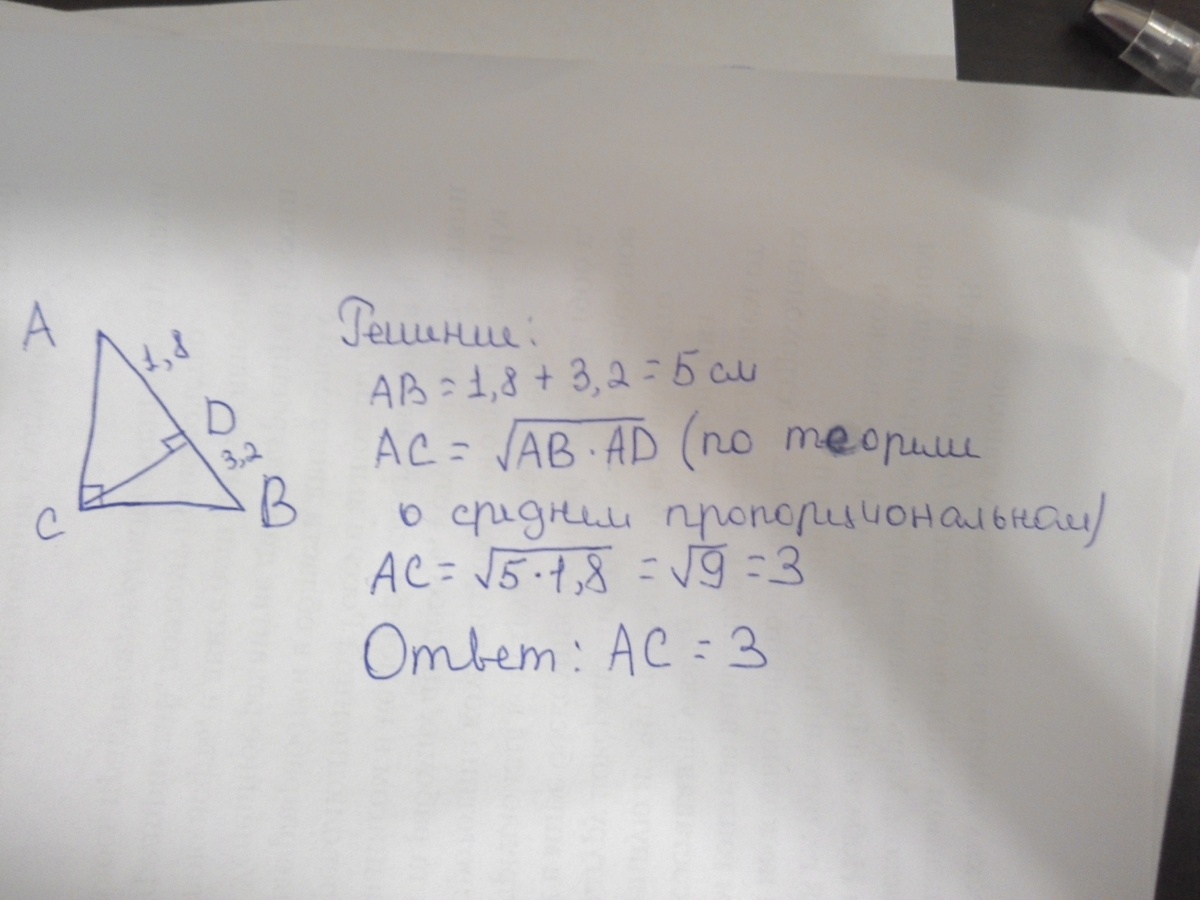 A
1,8
D
3,2
C
B
Решение:
AB = 1,8 + 3,2 = 5 см
AC = √AB · AD (по теории
о среднем пропорциональном)
AC = √5·1,8 = √9 = 3
Ответ: AC = 3